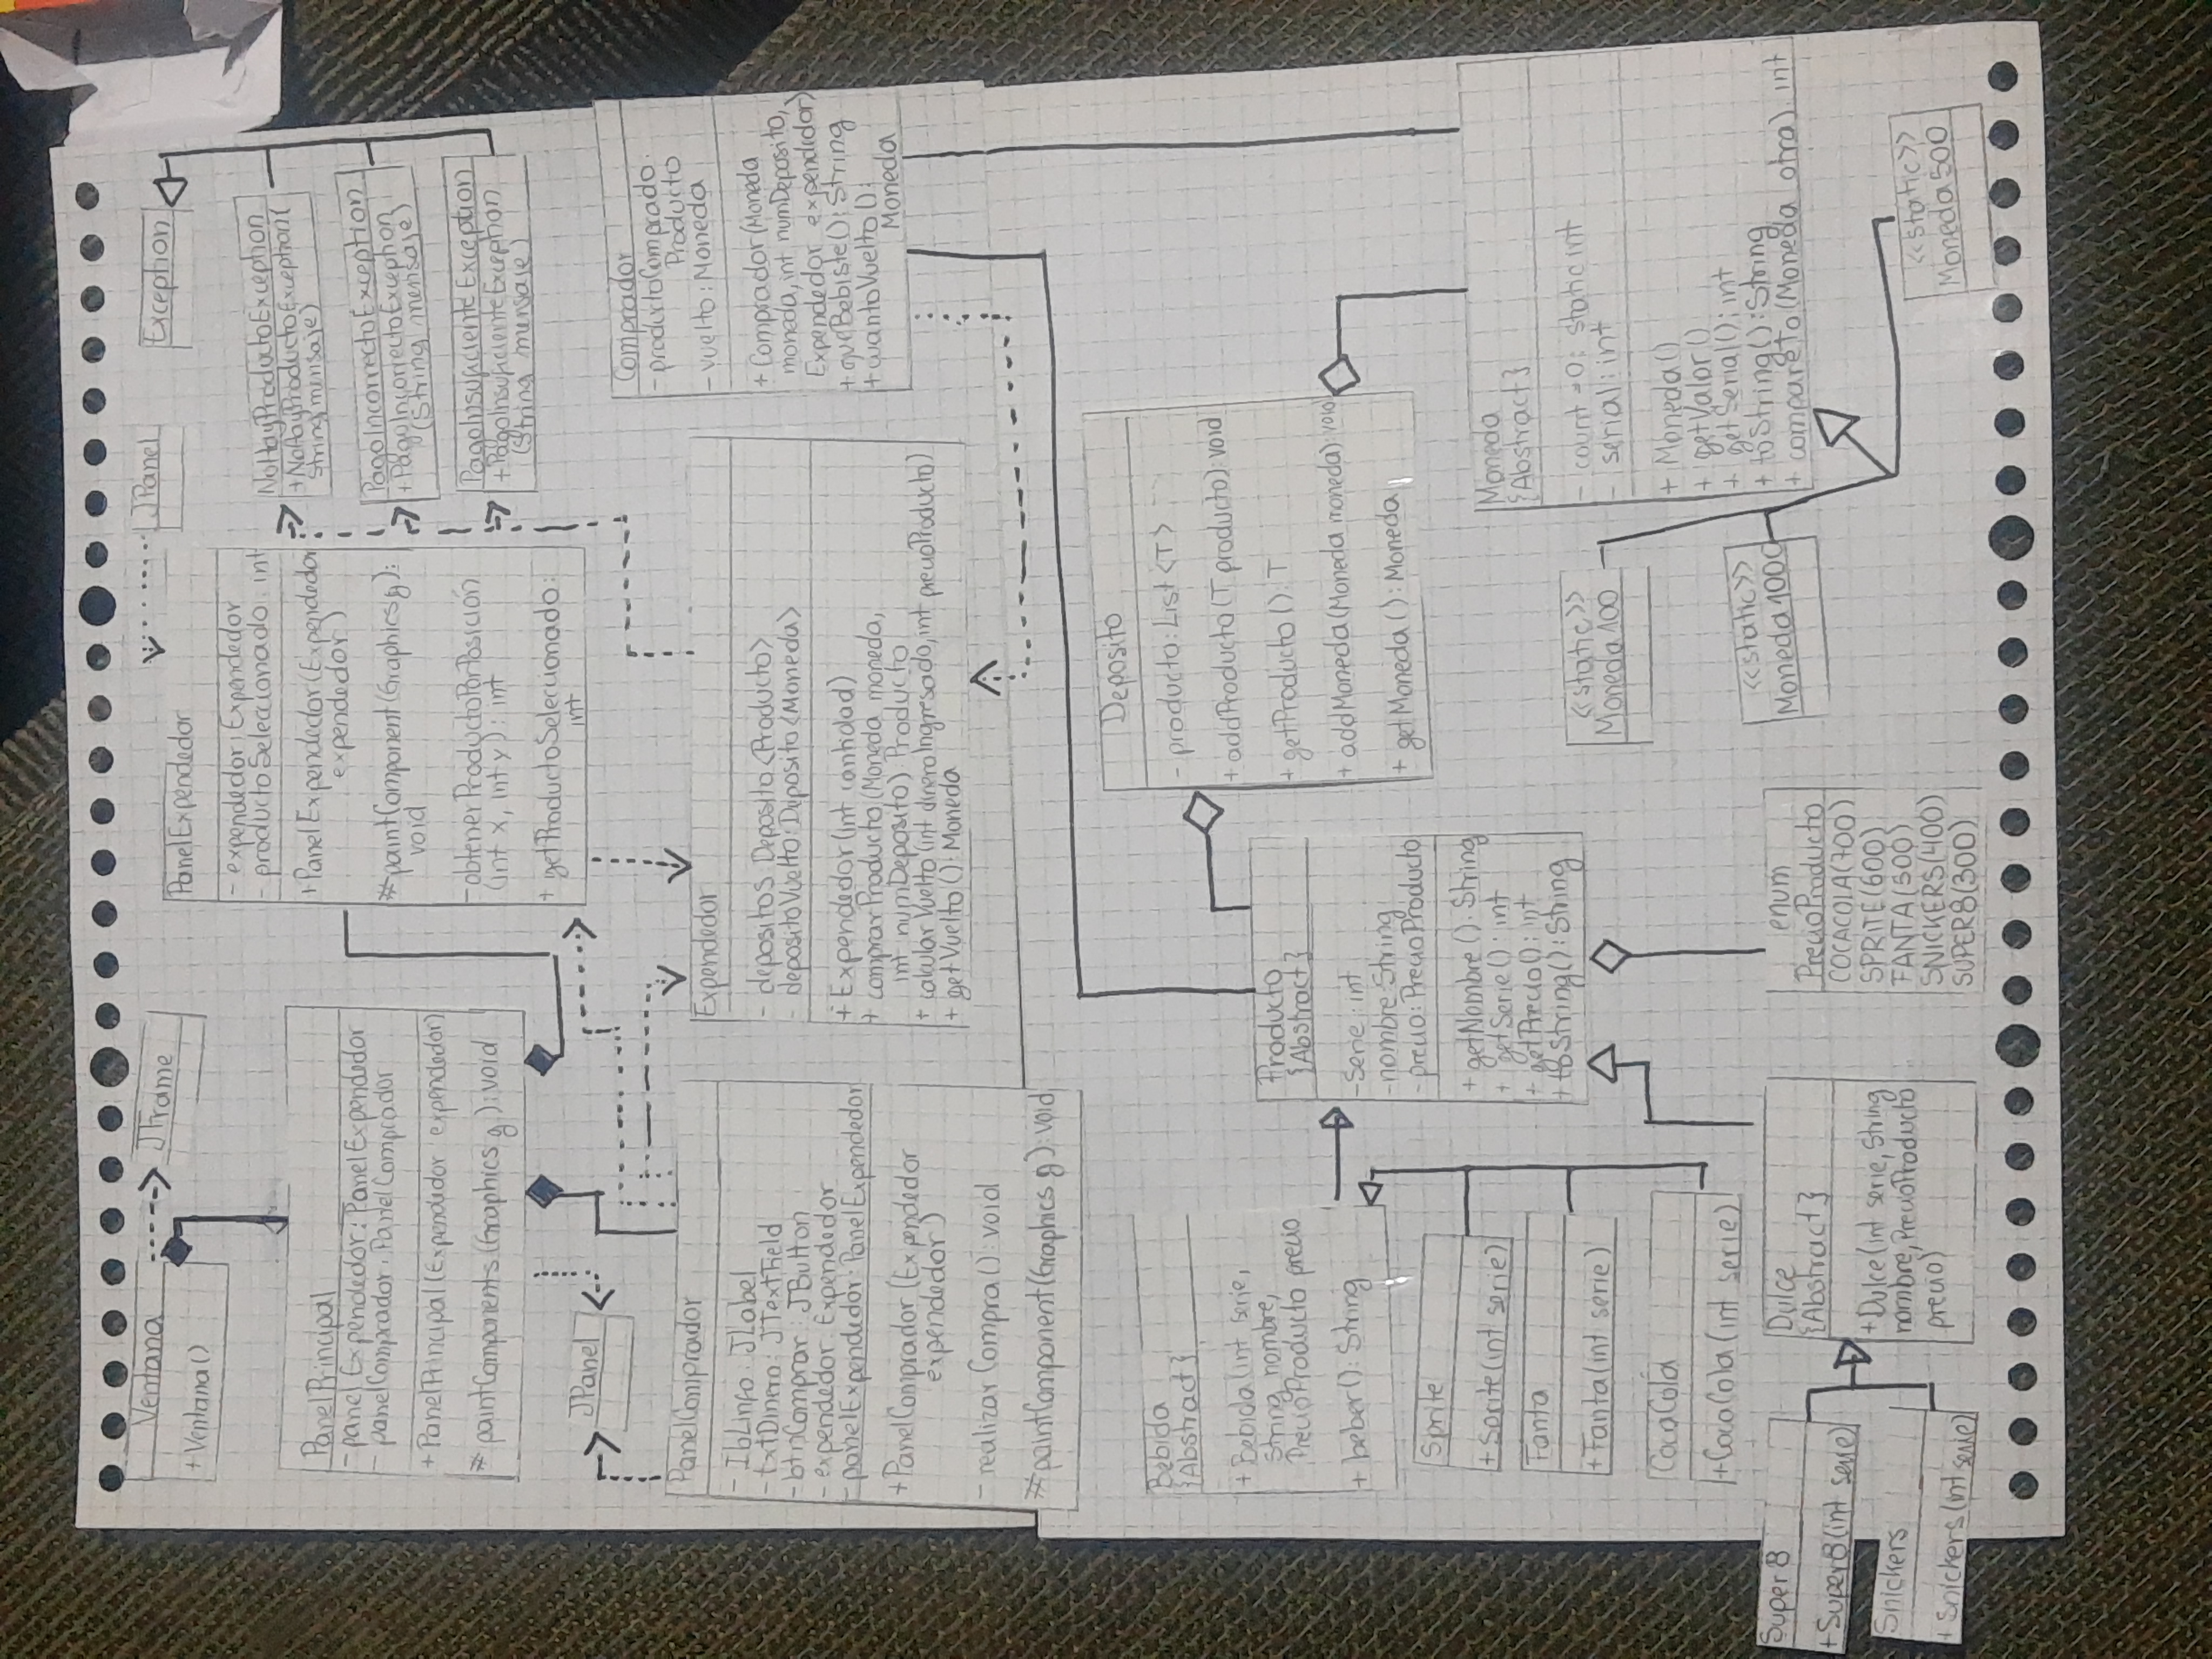 Ventana
+Ventana()
JFrame
JPanel
Exception
PanelExpendedor
- expendedor: Expendedor
- productoSeleccionado: int
+PanelExpendedor(Expendedor
expendedor)
#paintComponent(Graphics g):
void
-obtenerProductoPorPosición
(int x, int y): int
+ getProductoSeleccionado:
int
NoHayProductoException
+NoHayProductoException(
String mensaje)
PagoIncorrectoException
+PagoIncorrectoException
(String mensaje)
PagoInsuficienteException
+PagoInsuficienteException
(String mensaje)
PanelPrincipal
- panelExpendedor: PanelExpendedor
- panelComprador: PanelComprador
+ PanelPrincipal(Expendedor expendedor)
# paintComponents(Graphics g): void
JPanel
PanelComprador
- lbLinfo: JLabel
-txtDinero: JTextField
-btnComprar: JButton
- expendedor: Expendedor
- panelExpendedor: PanelExpendedor
+PanelComprador(Expendedor
expendedor)
- realizarCompra(): void
#paintComponent(Graphics g): void
Expendedor
- depositos: Deposito<Producto>
- depositoVuelto: Deposito<Moneda>
+ Expendedor(int cantidad)
+ comprarProducto(Moneda moneda,
int numDeposito): Producto
+ calcularVuelto(int dineroIngresado, int precioProducto)
+ getVuelto(): Moneda
Comprador
- productoComprado:
Producto
- vuelto: Moneda
+ Comprador(Moneda
moneda, int numDeposito,
Expendedor expendedor)
+queBebiste(): String
+cuantoVuelto():
Moneda
Bebida
{Abstract}
+ Bebida(int serie,
String nombre,
PrecioProducto precio
+ beber(): String
Sprite
+ Sprite(int serie)
Fanta
+Fanta(int serie)
CocaCola
+CocaCola(int serie)
Producto
{Abstract}
-serie: int
-nombre: String
-precio: PrecioProducto
+ getNombre(): String
+ getSerie(): int
+ getPrecio(): int
+ toString(): String
Deposito
- producto: List<T>
+ addProducto(T producto): void
+ getProducto(): T
+ addMoneda(Moneda moneda): void
+ getMoneda(): Moneda
Moneda
{Abstract}
- count=0: static int
- serial: int
+ Moneda()
+ getValor()
+ getSerial(): int
+ toString(): String
+ compareto(Moneda otra): int
<<static>>
Moneda100
<<static>>
Moneda1000
<<static>>
Moneda500
Super8
+Super8(int serie)
Snickers
+ Snickers(int serie)
Dulce
{Abstract}
+Dulce(int serie, String
nombre, PrecioProducto
precio)
enum
PrecioProducto
COCACOLA(700)
SPRITE(600)
FANTA(500)
SNICKERS(400)
SUPER8(300)